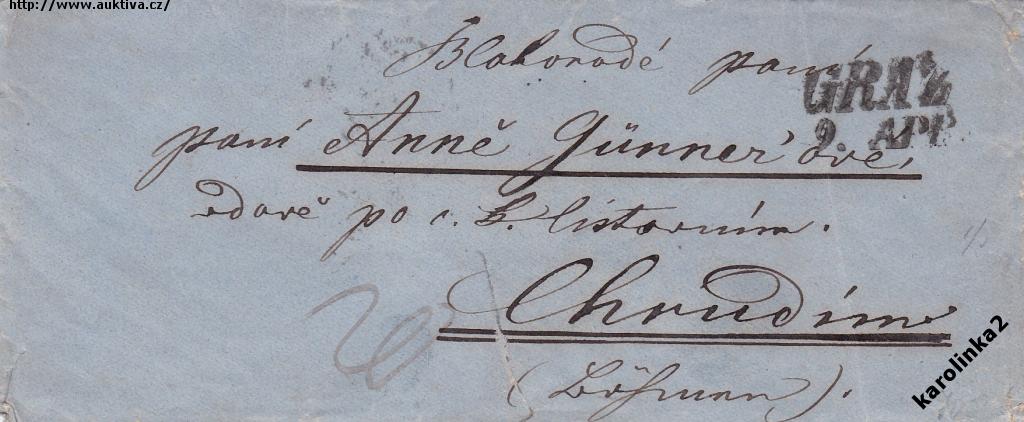 http://www.auktiva.cz/
Blahorodé paní
GRATZ
9. APR
paní Anně Günner'ové,
vdově po c. k. listovním.
Chrudim
(Böhmen).
karolinka2